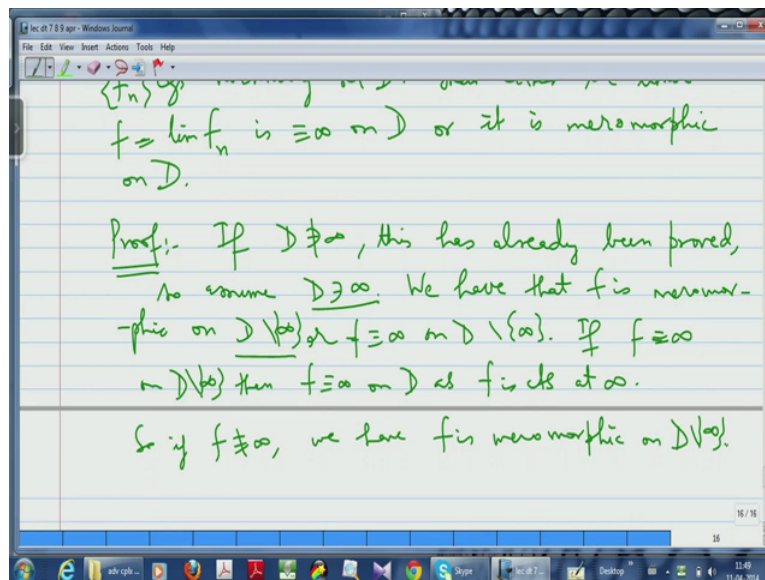 lec dt 7 8 9 apr - Windows Journal
File Edit View Insert Actions Tools Help
{fn}
f = lim fn is ≡ ∞ on D or it is meromorphic
on D.
Proof:- If D ∌ ∞, this has already been proved,
so assume D ∋ ∞. We have that f is meromor-
-phic on D \ {∞} or f ≡ ∞ on D \ {∞}. If f ≡ ∞
on D\{∞} then f ≡ ∞ on D as f is cts at ∞.
So if f ≢ ∞, we have f is meromorphic on D\{∞}.
16 / 16
16
adv cplx ...
Skype
lec dt 7 ...
Desktop
11:49
11-04-2014